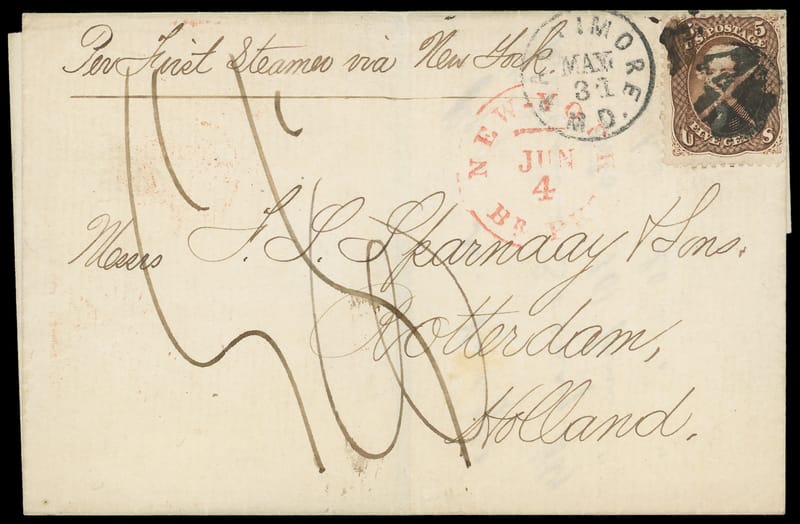 Per First Steamer via New York
BALTIMORE MD.
MAY
31
NEW YORK
JUN
4
BR. PKT
5 5
U.S. POSTAGE
FIVE CENTS
U S
Messrs S. S. Sparnaay & Sons.
Rotterdam,
Holland.